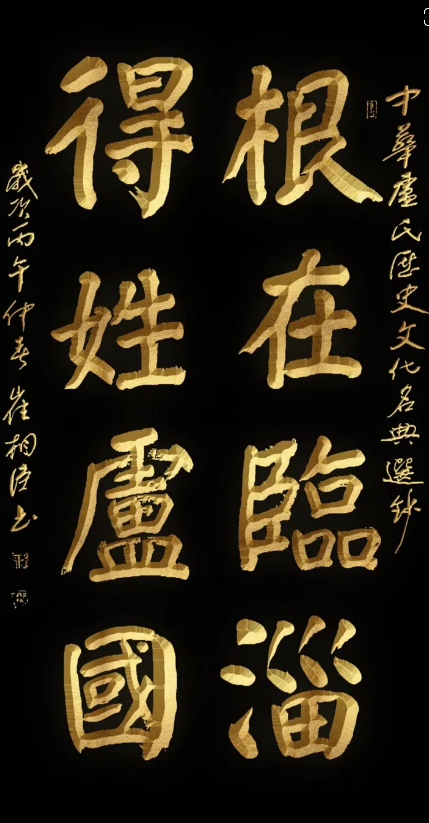 中華盧氏歷史文化名典選鈔
根在臨淄
得姓盧國
歲次丙午仲春崔相臣書